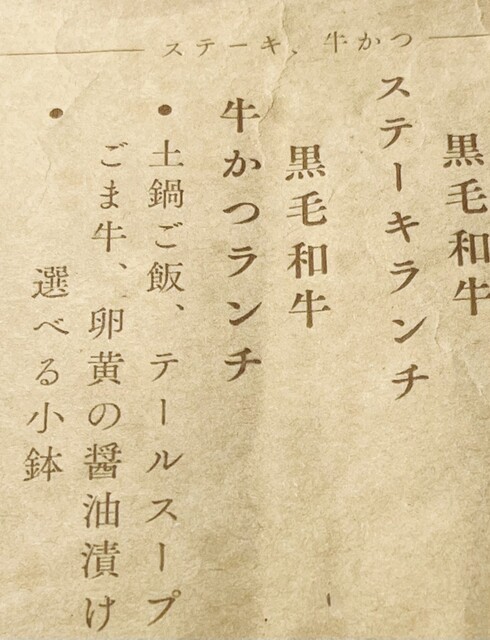 ステーキ、牛かつ
黒毛和牛
ステーキランチ
黒毛和牛
牛かつランチ
●土鍋ご飯、テールスープ
ごま牛、卵黄の醤油漬け
●選べる小鉢